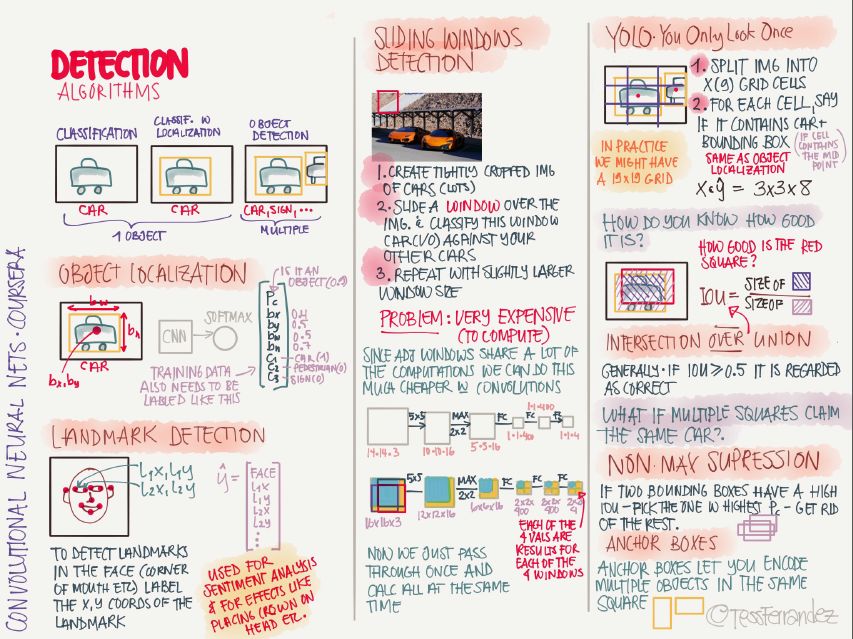 DETECTION
ALGORITHMS
CLASSIFICATION
CLASSIF. W
LOCALIZATION
OBJECT
DETECTION
CAR
CAR
CAR, SIGN, ...
1 OBJECT
MULTIPLE
OBJECT LOCALIZATION
bw
bh
bx,by
CAR
CNN
SOFTMAX
IS IT AN
OBJECT(0.9)
Pc
bx 0.4
by 0.5
bw 0.5
bh 0.7
C1 - CAR(1)
C2 - PEDESTRIAN(0)
C3 - SIGN(0)
TRAINING DATA
ALSO NEEDS TO BE
LABLED LIKE THIS
LANDMARK DETECTION
L1X, L1Y
L2X, L2Y
ŷ =
FACE
L1X
L1Y
L2X
L2Y
⋮
TO DETECT LANDMARKS
IN THE FACE (CORNER
OF MOUTH ETC) LABEL
THE X,Y COORDS OF THE
LANDMARK
USED FOR
SENTIMENT ANALYSIS
& FOR EFFECTS LIKE
PLACING CROWN ON
HEAD ETC.
CONVOLUTIONAL NEURAL NETS · COURSERA
SLIDING WINDOWS
DETECTION
1. CREATE TIGHTLY CROPPED IMG
OF CARS (LOTS)
2. SLIDE A WINDOW OVER THE
IMG. & CLASSIFY THIS WINDOW
CAR(1/0) AGAINST YOUR
OTHER CARS
3. REPEAT WITH SLIGHTLY LARGER
WINDOW SIZE
PROBLEM: VERY EXPENSIVE
(TO COMPUTE)
SINCE ADJ WINDOWS SHARE A LOT OF
THE COMPUTATIONS WE CAN DO THIS
MUCH CHEAPER W CONVOLUTIONS
5x5
MAX
2x2
FC
FC
14·14·3
10·10·16
5·5·16
1·1·400
1·1·400
1·1·4
5x5
MAX
2x2
FC
FC
FC
16x16x3
12x12x16
6x6x16
2x2x
400
2x2x
400
2x2x
4
EACH OF THE
4 VALS ARE
RESULTS FOR
EACH OF THE
4 WINDOWS
NOW WE JUST PASS
THROUGH ONCE AND
CALC ALL AT THE SAME
TIME
YOLO · You Only Look Once
1. SPLIT IMG INTO
X(9) GRID CELLS
2. FOR EACH CELL, SAY
IF IT CONTAINS CAR+
BOUNDING BOX
(IF CELL
CONTAINS
THE MID
POINT)
SAME AS OBJECT
LOCALIZATION
IN PRACTICE
WE MIGHT HAVE
A 19x19 GRID
X&ŷ = 3x3x8
HOW DO YOU KNOW HOW GOOD
IT IS?
HOW GOOD IS THE RED
SQUARE?
IOU =
SIZE OF
SIZE OF
INTERSECTION OVER UNION
GENERALLY · IF IOU ≥ 0.5 IT IS REGARDED
AS CORRECT
WHAT IF MULTIPLE SQUARES CLAIM
THE SAME CAR?
NON·MAX SUPRESSION
IF TWO BOUNDING BOXES HAVE A HIGH
IOU - PICK THE ONE W HIGHEST Pc - GET RID
OF THE REST.
ANCHOR BOXES
ANCHOR BOXES LET YOU ENCODE
MULTIPLE OBJECTS IN THE SAME
SQUARE
@TessFerrandez